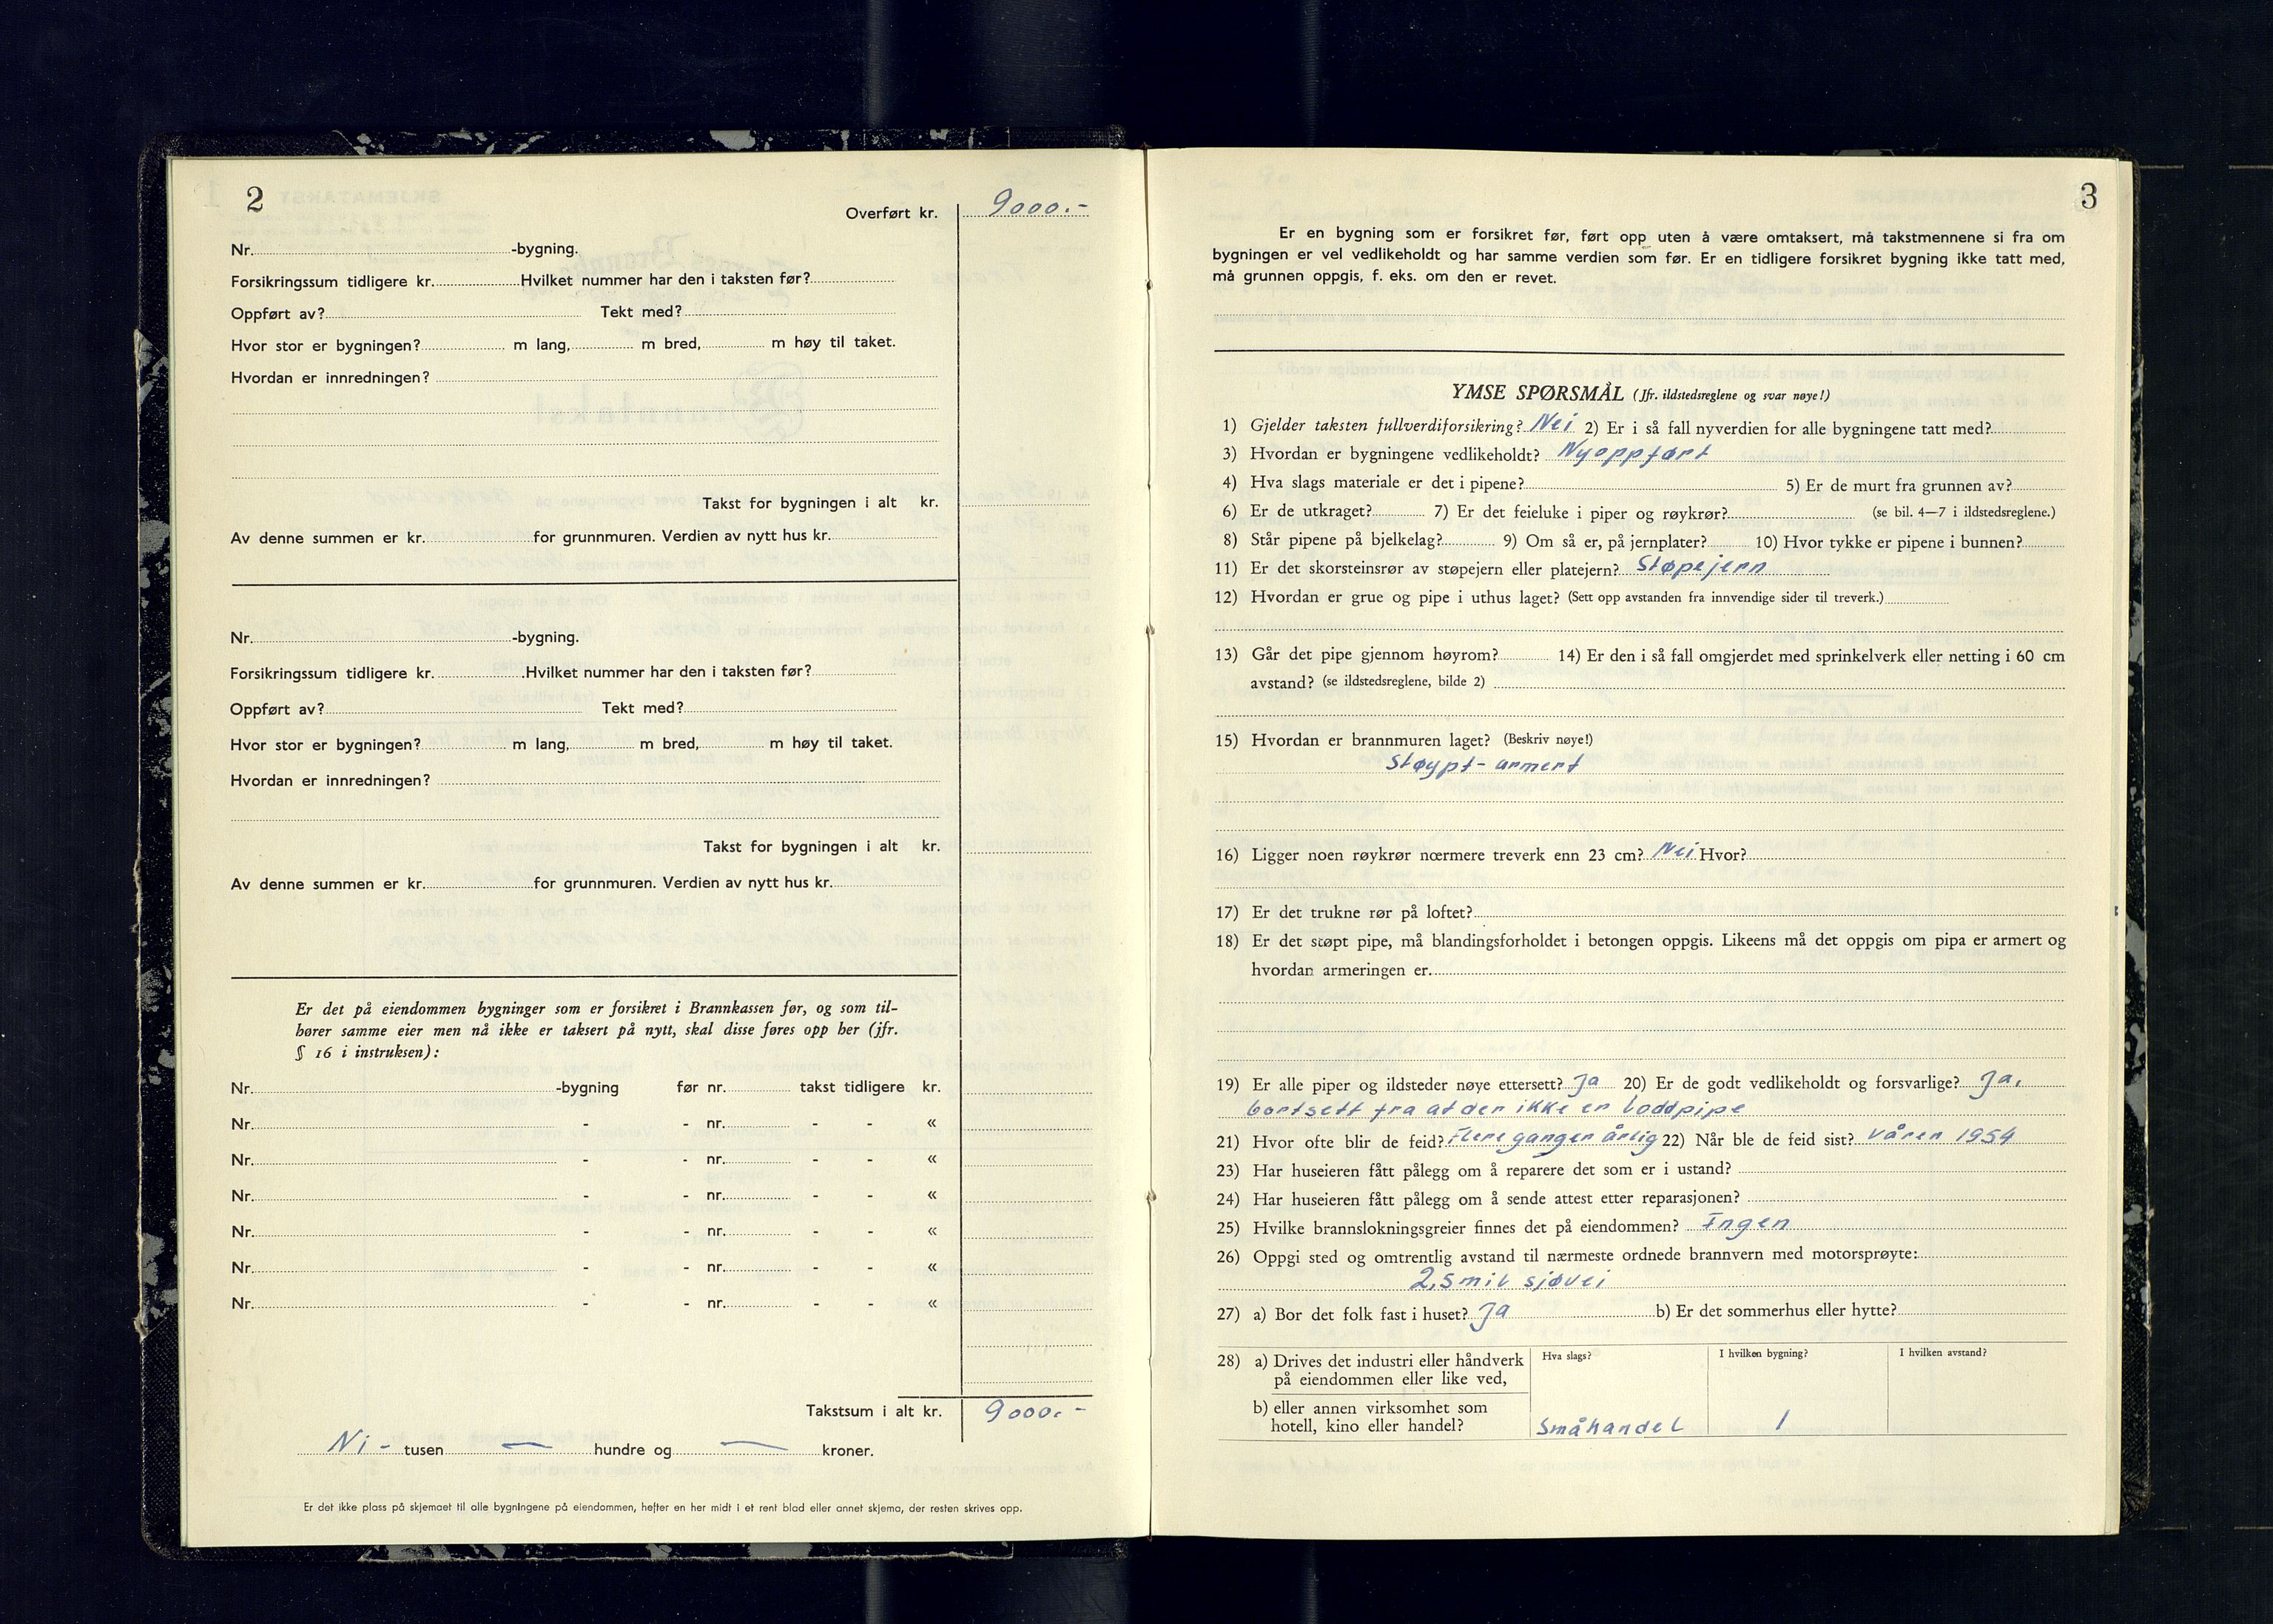 2
Overført kr. 9000.-
Nr. -bygning.
Forsikringssum tidligere kr. Hvilket nummer har den i taksten før?
Oppført av? Tekt med?
Hvor stor er bygningen? m lang, m bred, m høy til taket.
Hvordan er innredningen?
Takst for bygningen i alt kr.
Av denne summen er kr. for grunnmuren. Verdien av nytt hus kr.
Nr. -bygning.
Forsikringssum tidligere kr. Hvilket nummer har den i taksten før?
Oppført av? Tekt med?
Hvor stor er bygningen? m lang, m bred, m høy til taket.
Hvordan er innredningen?
Takst for bygningen i alt kr.
Av denne summen er kr. for grunnmuren. Verdien av nytt hus kr.
Er det på eiendommen bygninger som er forsikret i Brannkassen før, og som til-
hører samme eier men nå ikke er taksert på nytt, skal disse føres opp her (jfr.
§ 16 i instruksen):
Nr. -bygning før nr. takst tidligere kr.
Nr. - - nr. - - «
Nr. - - nr. - - «
Nr. - - nr. - - «
Nr. - - nr. - - «
Nr. - - nr. - - «
Nr. - - nr. - - «
Takstsum i alt kr. 9000.-
Ni - tusen — hundre og — kroner.
Er det ikke plass på skjemaet til alle bygningene på eiendommen, hefter en her midt i et rent blad eller annet skjema, der resten skrives opp.
3
Er en bygning som er forsikret før, ført opp uten å være omtaksert, må takstmennene si fra om
bygningen er vel vedlikeholdt og har samme verdien som før. Er en tidligere forsikret bygning ikke tatt med,
må grunnen oppgis, f. eks. om den er revet.
YMSE SPØRSMÅL (Jfr. ildstedsreglene og svar nøye!)
1) Gjelder taksten fullverdiforsikring? Nei 2) Er i så fall nyverdien for alle bygningene tatt med?
3) Hvordan er bygningene vedlikeholdt? Nyoppført
4) Hva slags materiale er det i pipene? 5) Er de murt fra grunnen av?
6) Er de utkraget? 7) Er det feieluke i piper og røykrør? (se bil. 4—7 i ildstedsreglene.)
8) Står pipene på bjelkelag? 9) Om så er, på jernplater? 10) Hvor tykke er pipene i bunnen?
11) Er det skorsteinsrør av støpejern eller platejern? Støpejern
12) Hvordan er grue og pipe i uthus laget? (Sett opp avstanden fra innvendige sider til treverk.)
13) Går det pipe gjennom høyrom? 14) Er den i så fall omgjerdet med sprinkelverk eller netting i 60 cm
avstand? (se ildstedsreglene, bilde 2)
15) Hvordan er brannmuren laget? (Beskriv nøye!)
Støypt - armert
16) Ligger noen røykrør nœrmere treverk enn 23 cm? Nei Hvor?
17) Er det trukne rør på loftet?
18) Er det støpt pipe, må blandingsforholdet i betongen oppgis. Likeens må det oppgis om pipa er armert og
hvordan armeringen er.
19) Er alle piper og ildsteder nøye ettersett? Ja 20) Er de godt vedlikeholdt og forsvarlige? Ja,
bortsett fra at der ikke er loddpipe
21) Hvor ofte blir de feid? Flere ganger årlig 22) Når ble de feid sist? Våren 1954
23) Har huseieren fått pålegg om å reparere det som er i ustand?
24) Har huseieren fått pålegg om å sende attest etter reparasjonen?
25) Hvilke brannslokningsgreier finnes det på eiendommen? Ingen
26) Oppgi sted og omtrentlig avstand til nærmeste ordnede brannvern med motorsprøyte:
2,5 mil sjøvei
27) a) Bor det folk fast i huset? Ja b) Er det sommerhus eller hytte?
28) a) Drives det industri eller håndverk Hva slags? I hvilken bygning? I hvilken avstand?
på eiendommen eller like ved,
b) eller annen virksomhet som
hotell, kino eller handel? Småhandel 1